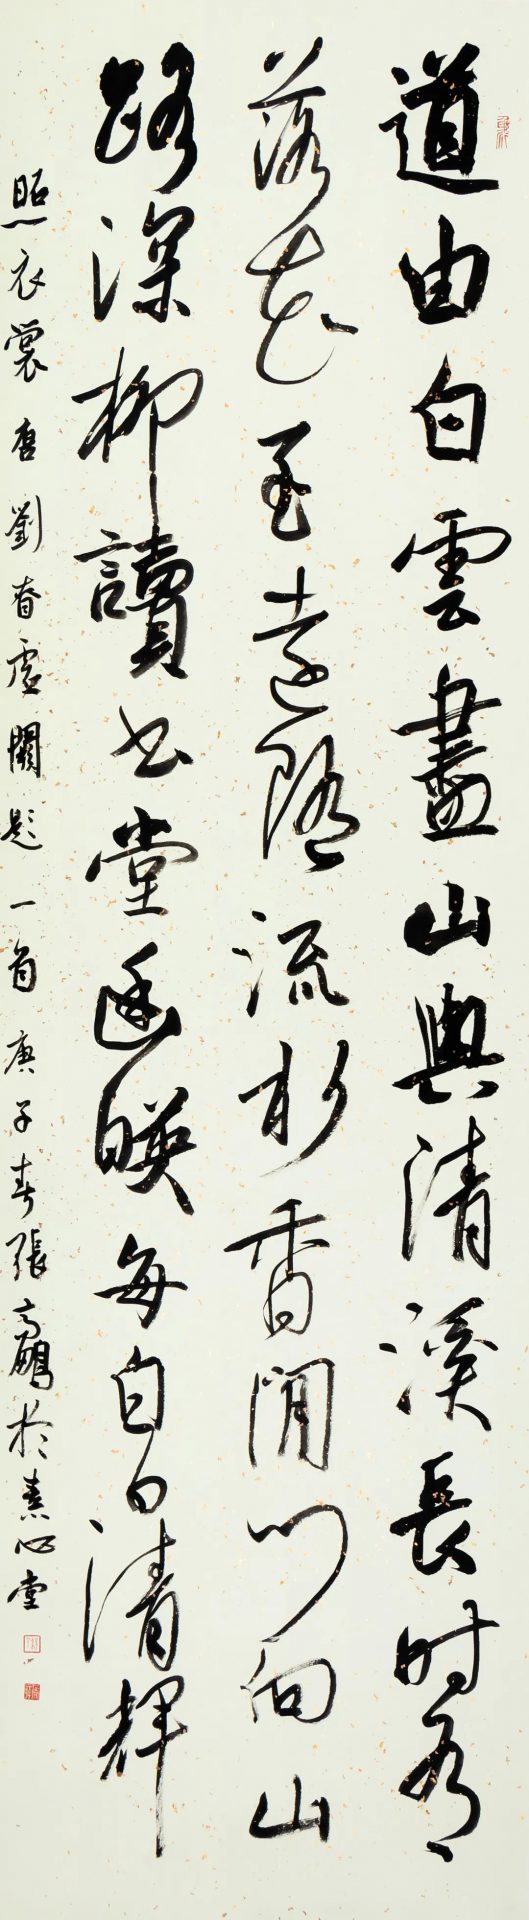 道由白雲盡山與清溪長时有
落花至遠隨流水香閒門向山
路深柳讀書堂幽映每白日清輝
照衣裳 唐劉眘虛闕題一首 庚子春張於素心堂